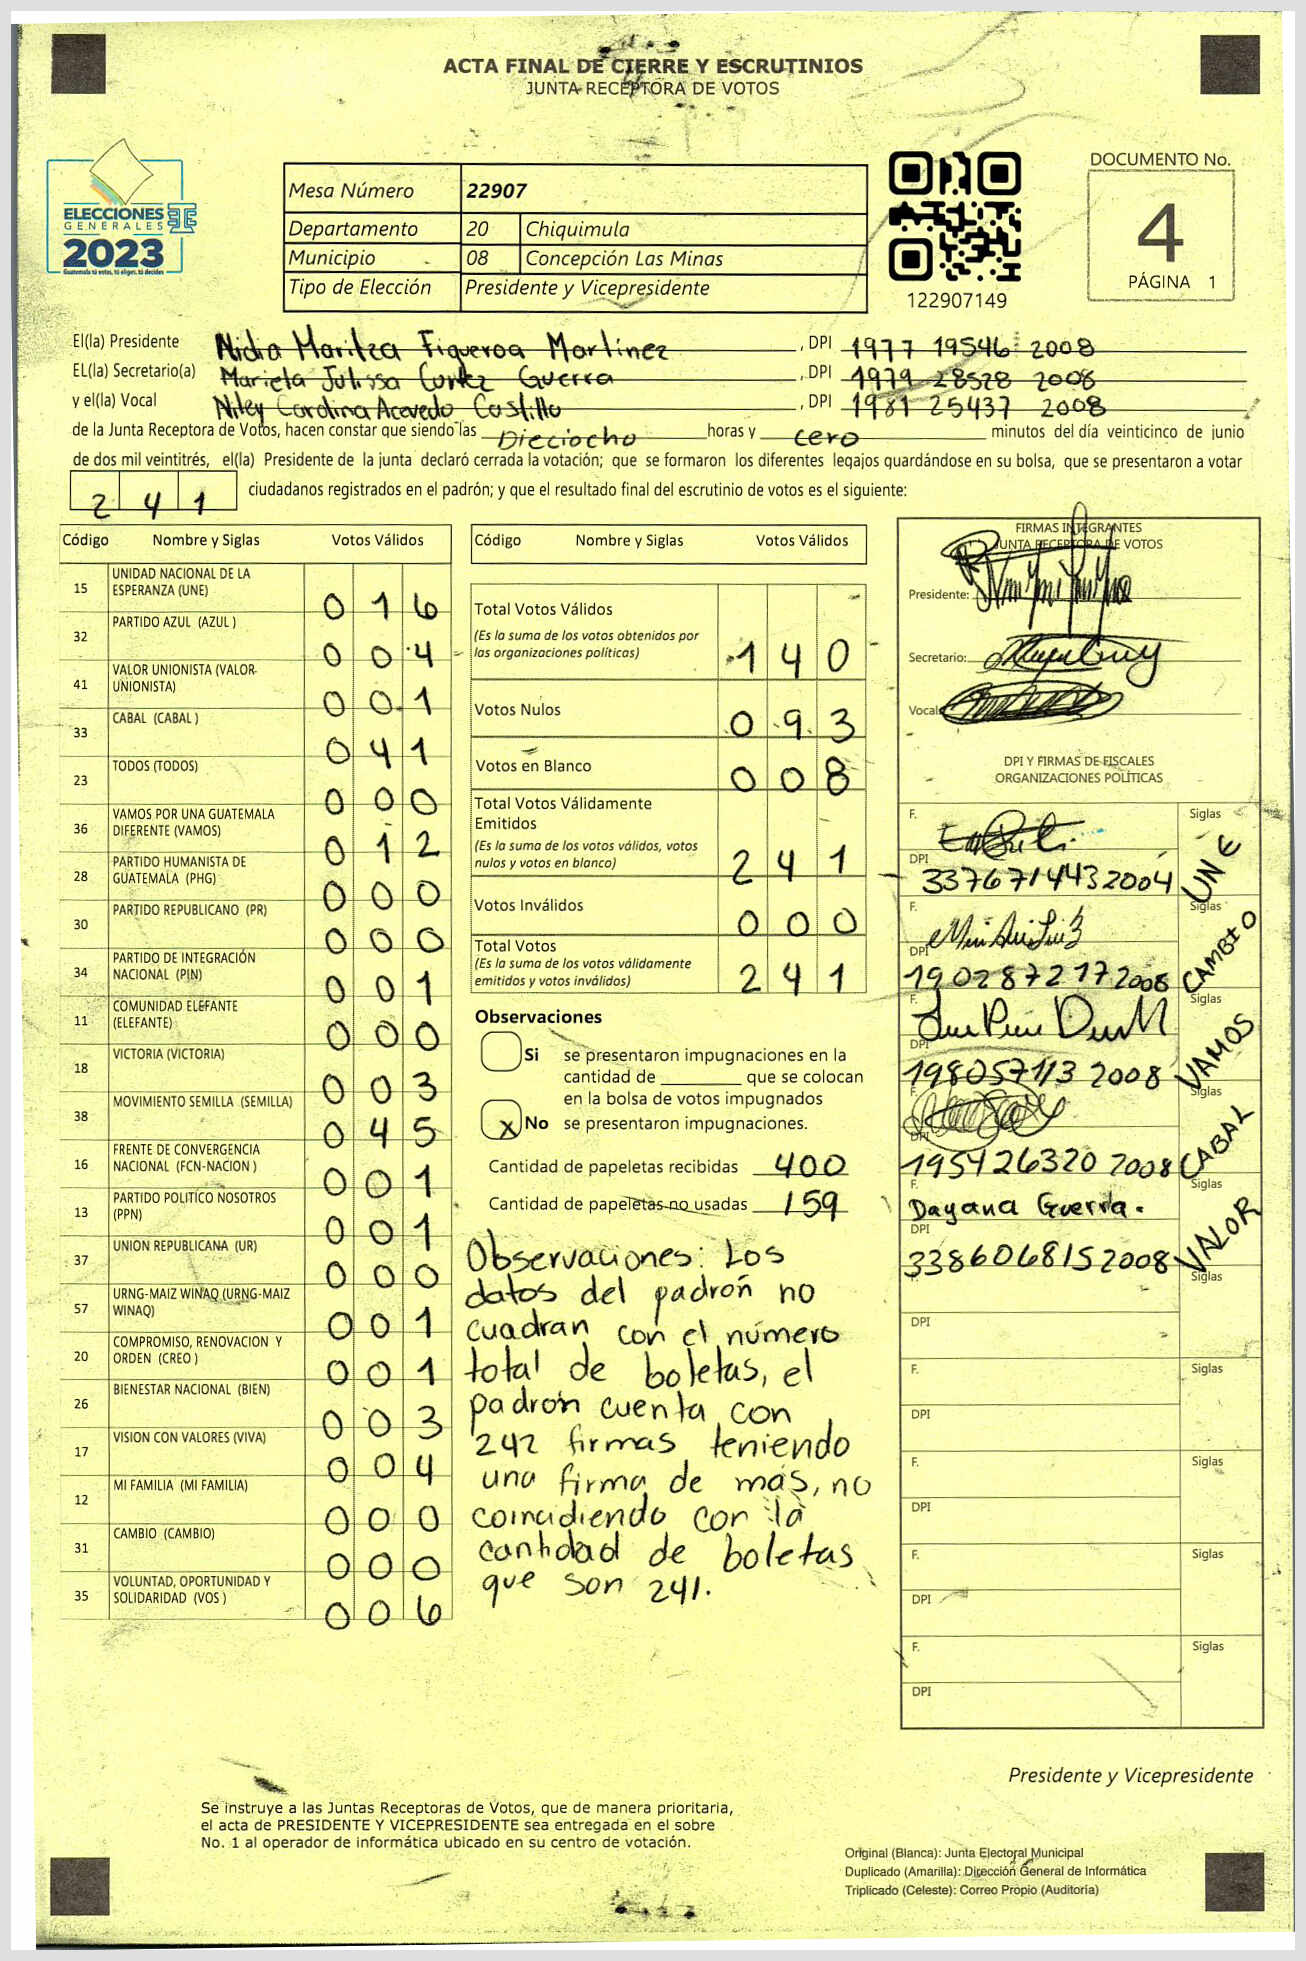 ACTA FINAL DE CIERRE Y ESCRUTINIOS
JUNTA RECEPTORA DE VOTOS
ELECCIONES
GENERALES
2023
Guatemala tú votas, tú eliges, tú decides
Mesa Número 22907
Departamento 20 Chiquimula
Municipio 08 Concepción Las Minas
Tipo de Elección Presidente y Vicepresidente
122907149
DOCUMENTO No.
4
PÁGINA 1
El(la) Presidente Nidia Maritza Figueroa Martínez , DPI 1977 19546 2008
EL(la) Secretario(a) Mariela Julissa Cortez Guerra , DPI 1979 28528 2008
y el(la) Vocal Niley Carolina Acevedo Castillo , DPI 1981 25437 2008
de la Junta Receptora de Votos, hacen constar que siendo las Dieciocho horas y cero minutos del día veinticinco de junio
de dos mil veintitrés, el(la) Presidente de la junta declaró cerrada la votación; que se formaron los diferentes legajos guardándose en su bolsa, que se presentaron a votar
2 4 1 ciudadanos registrados en el padrón; y que el resultado final del escrutinio de votos es el siguiente:
Código Nombre y Siglas Votos Válidos
15 UNIDAD NACIONAL DE LA
ESPERANZA (UNE) 0 1 6
32 PARTIDO AZUL (AZUL ) 0 0 4
41 VALOR UNIONISTA (VALOR-
UNIONISTA) 0 0 1
33 CABAL (CABAL ) 0 4 1
23 TODOS (TODOS) 0 0 0
36 VAMOS POR UNA GUATEMALA
DIFERENTE (VAMOS) 0 1 2
28 PARTIDO HUMANISTA DE
GUATEMALA (PHG) 0 0 0
30 PARTIDO REPUBLICANO (PR) 0 0 0
34 PARTIDO DE INTEGRACIÓN
NACIONAL (PIN) 0 0 1
11 COMUNIDAD ELEFANTE
(ELEFANTE) 0 0 0
18 VICTORIA (VICTORIA) 0 0 3
38 MOVIMIENTO SEMILLA (SEMILLA) 0 4 5
16 FRENTE DE CONVERGENCIA
NACIONAL (FCN-NACION ) 0 0 1
13 PARTIDO POLITICO NOSOTROS
(PPN) 0 0 1
37 UNION REPUBLICANA (UR) 0 0 0
57 URNG-MAIZ WINAQ (URNG-MAIZ
WINAQ) 0 0 1
20 COMPROMISO, RENOVACION Y
ORDEN (CREO ) 0 0 1
26 BIENESTAR NACIONAL (BIEN) 0 0 3
17 VISION CON VALORES (VIVA) 0 0 4
12 MI FAMILIA (MI FAMILIA) 0 0 0
31 CAMBIO (CAMBIO) 0 0 0
35 VOLUNTAD, OPORTUNIDAD Y
SOLIDARIDAD (VOS ) 0 0 6
Código Nombre y Siglas Votos Válidos
Total Votos Válidos
(Es la suma de los votos obtenidos por
las organizaciones políticas) 1 4 0
Votos Nulos 0 9 3
Votos en Blanco 0 0 8
Total Votos Válidamente
Emitidos
(Es la suma de los votos válidos, votos
nulos y votos en blanco) 2 4 1
Votos Inválidos 0 0 0
Total Votos
(Es la suma de los votos válidamente
emitidos y votos inválidos) 2 4 1
Observaciones
Si se presentaron impugnaciones en la
cantidad de ________ que se colocan
en la bolsa de votos impugnados
x No se presentaron impugnaciones.
Cantidad de papeletas recibidas 400
Cantidad de papeletas no usadas 159
Observaciones: Los
datos del padrón no
cuadran con el número
total de boletas, el
padrón cuenta con
242 firmas teniendo
una firma de más, no
coincidiendo con la
cantidad de boletas
que son 241.
FIRMAS INTEGRANTES
JUNTA RECEPTORA DE VOTOS
Presidente:
Secretario:
Vocal:
DPI Y FIRMAS DE FISCALES
ORGANIZACIONES POLÍTICAS
F. Siglas
DPI 3376714432004 UNE
F. Siglas
DPI 1902872172008 CAMBIO
F. Siglas
DPI 198057113 2008 VAMOS
F. Siglas
DPI 195426320 2008 CABAL
F. Dayana Guerra. Siglas
DPI 3386068152008 VALOR
F. Siglas
DPI
F. Siglas
DPI
F. Siglas
DPI
F. Siglas
DPI
F. Siglas
DPI
Presidente y Vicepresidente
Se instruye a las Juntas Receptoras de Votos, que de manera prioritaria,
el acta de PRESIDENTE Y VICEPRESIDENTE sea entregada en el sobre
No. 1 al operador de informática ubicado en su centro de votación.
Original (Blanca): Junta Electoral Municipal
Duplicado (Amarilla): Dirección General de Informática
Triplicado (Celeste): Correo Propio (Auditoría)